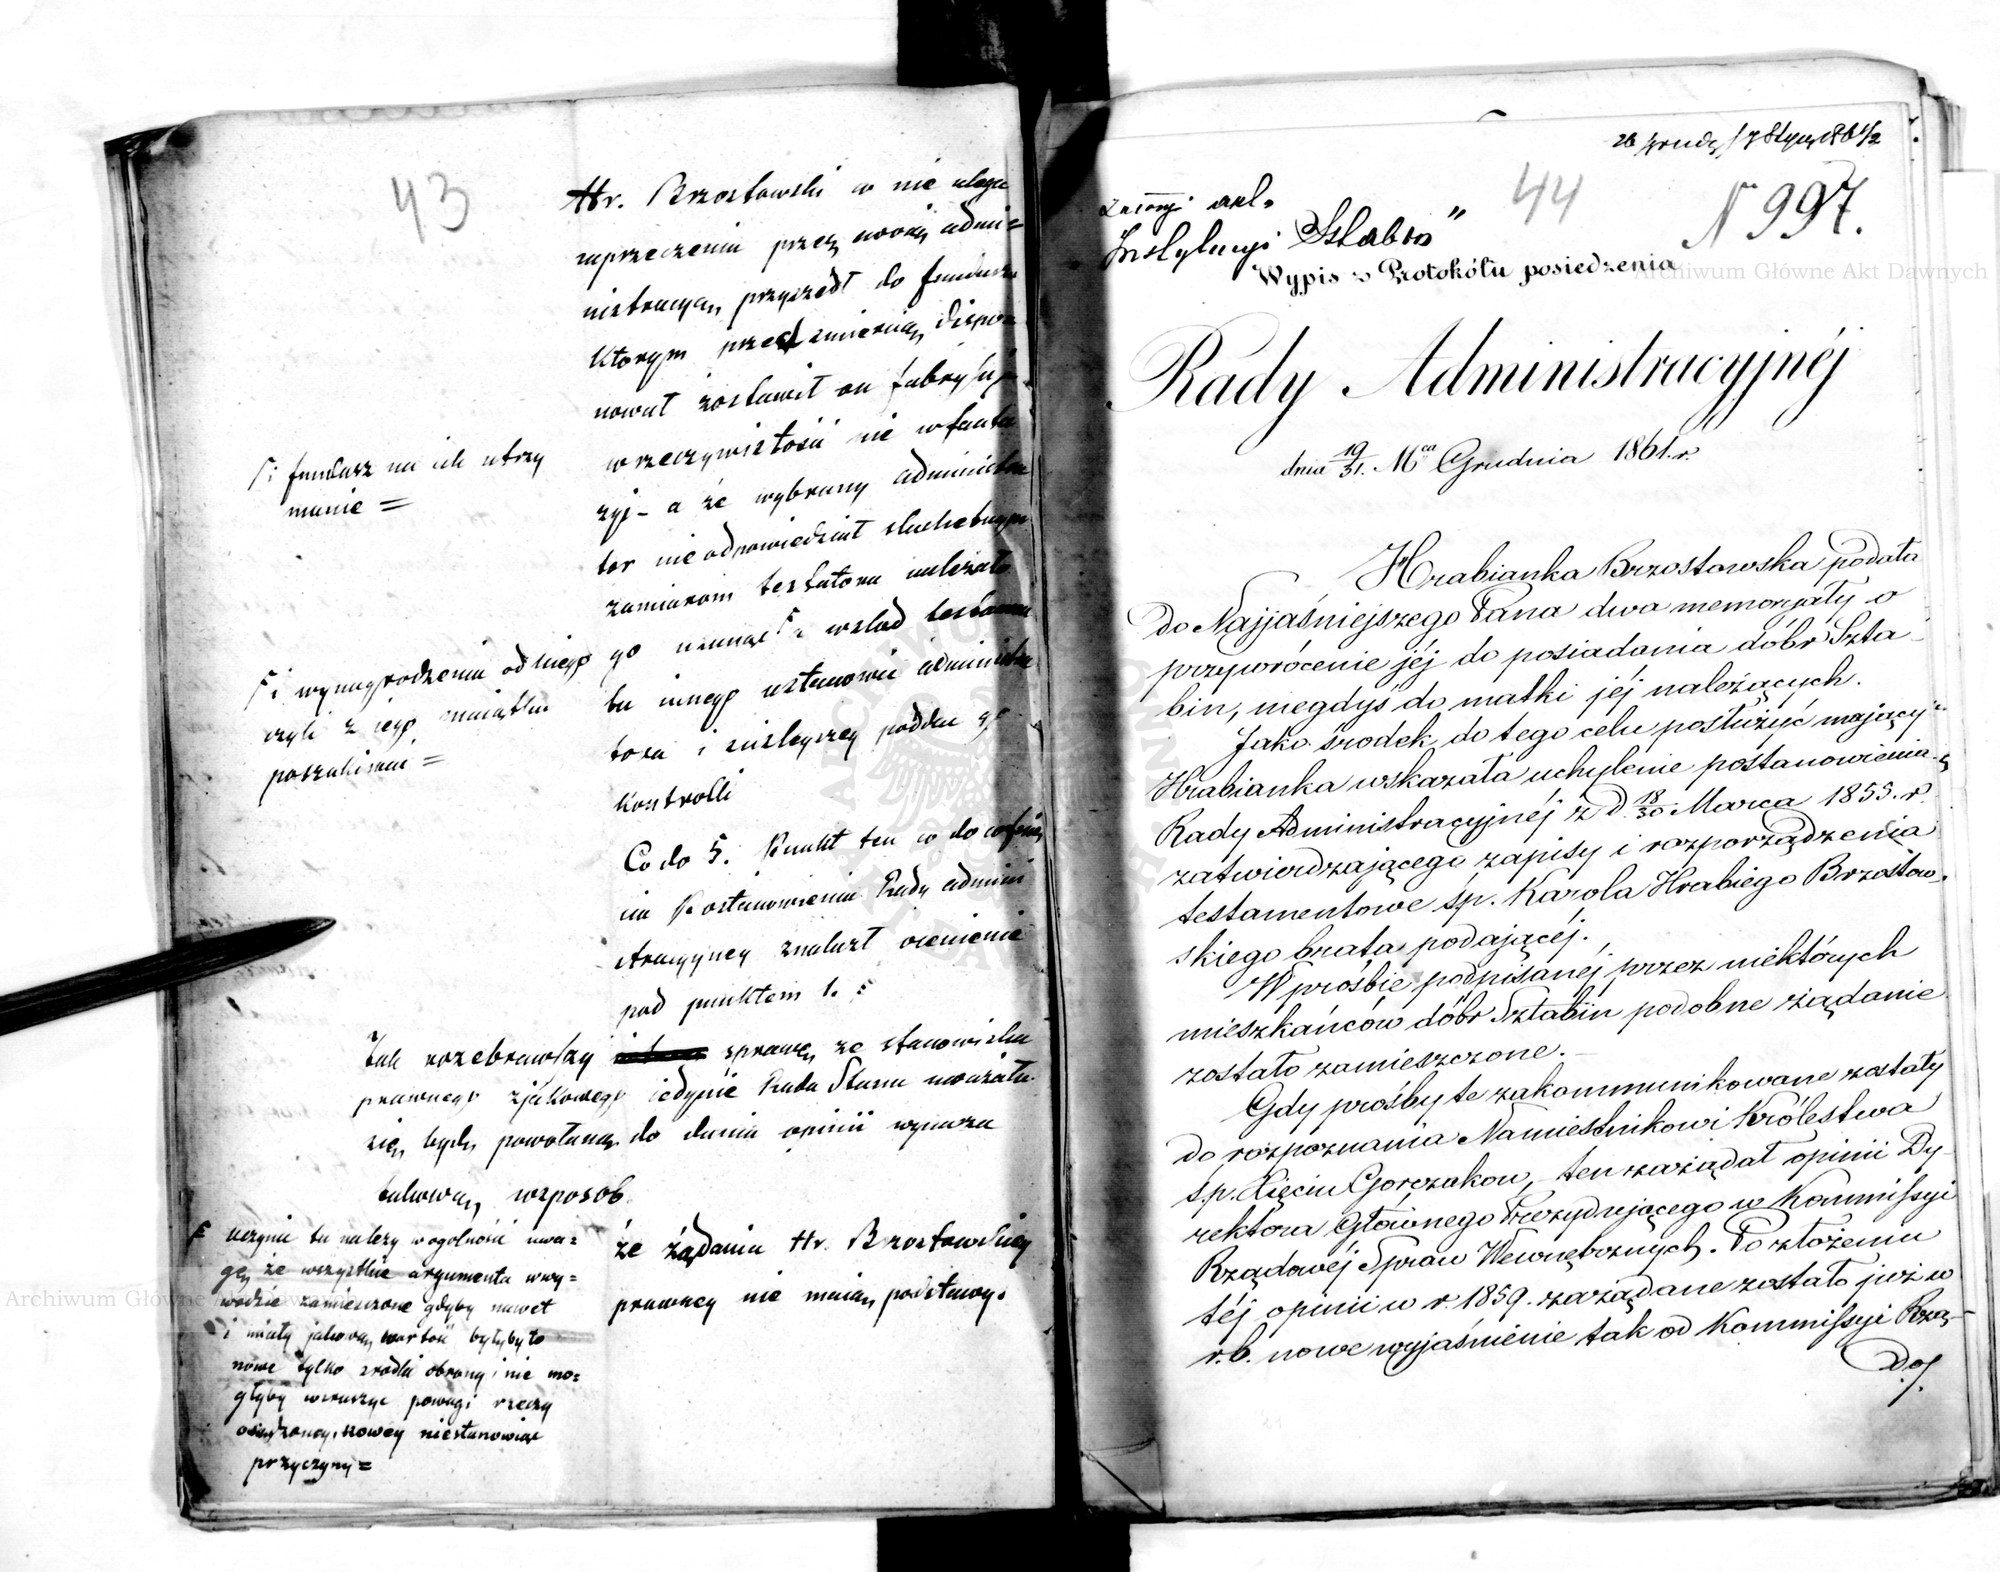 43
Hr. Brzostowski w nie ulega
zaprzeczeniu przez swoią admi=
nistracyą, przyszedł do fundusza
Którym przed śmiercią dispo=
nował zostawił on fabryki
w rzeczywistości nie w fanta
zyi - a że wybrany administra
tor nie odpowiedział szlachetnym
zamiarom testatora należało
go usunąć i w ślad testamen
tu innego ustanowić administra
tora i ściślejszej poddać go
Kontrolli
Γ: fundusz na ich utrzy
manie =
Γ i wynagrodzenia od niego
czyli z iego maiątku
poszukiwać =
Co do 5. Punkt ten w do
nia Postanowienia Rady admini
stracyjney znalazł ocenienie
pod punktem 1. Γ
Tak rozebrawszy sprawę ze stanowiska
prawnego z jakowego iedynie Rada Stanu uważała
się być powołaną do dania opinii wyraża
takową w sposób
że żądania Hr. Brzostowskiey
prawney nie maią podstawy.
Γ uczynić tu należy w ogólności uwa=
gę, że wszystkie argumenta w wy=
wodzie zamieszczone gdyby nawet
i miały jakową wartość byłyby to
nowe tylko źródła obrony i nie mo=
głyby wzruszyć powagi rzeczy
osądzoney, nowey niestanowiąc
przyczyny =
26 Grudn/7 Stycz 1861/2
44
N 997.
akt
Instytucyi Sztabin"
Wypis z Protokółu posiedzenia
Rady Administracyjnéj
dnia 19/31. Mca Grudnia 1861. r.
Hrabianka Brzostowska podała
do Najjaśniejszego Pana dwa memoryały o
przywrócenie jéj do posiadania dóbr Szta-
bin, niegdyś do matki jéj należących.
Jako środek do tego celu posłużyć mający
Hrabianka wskazała uchylenie postanowienia
Rady Administracyjnéj z d. 18/30 Marca 1855. r.
zatwierdzającego zapisy i rozporządzenia
testamentowe śp. Karola Hrabiego Brzostow-
skiego brata podającéj.
W prośbie podpisanéj przez niektórych
mieszkańców dóbr Sztabin podobne żądanie
zostało zamieszczone.
Gdy prośby te zakommunikowane zostały
do rozpoznania Namiestnikowi Królestwa
ś.p. Xięciu Gorczakow, - ten zażądał opinii Dy-
rektora Głównego Prezydującego w Kommissyi
Rządowéj Spraw Wewnętrznych. Po złożeniu
téj opinii w r. 1859. zażądane zostało już w
r. b. nowe wyjaśnienie tak od Kommissyi Rzą-
do/.
Archiwum Główne Akt Dawnych
Archiwum Główne Akt Dawnych